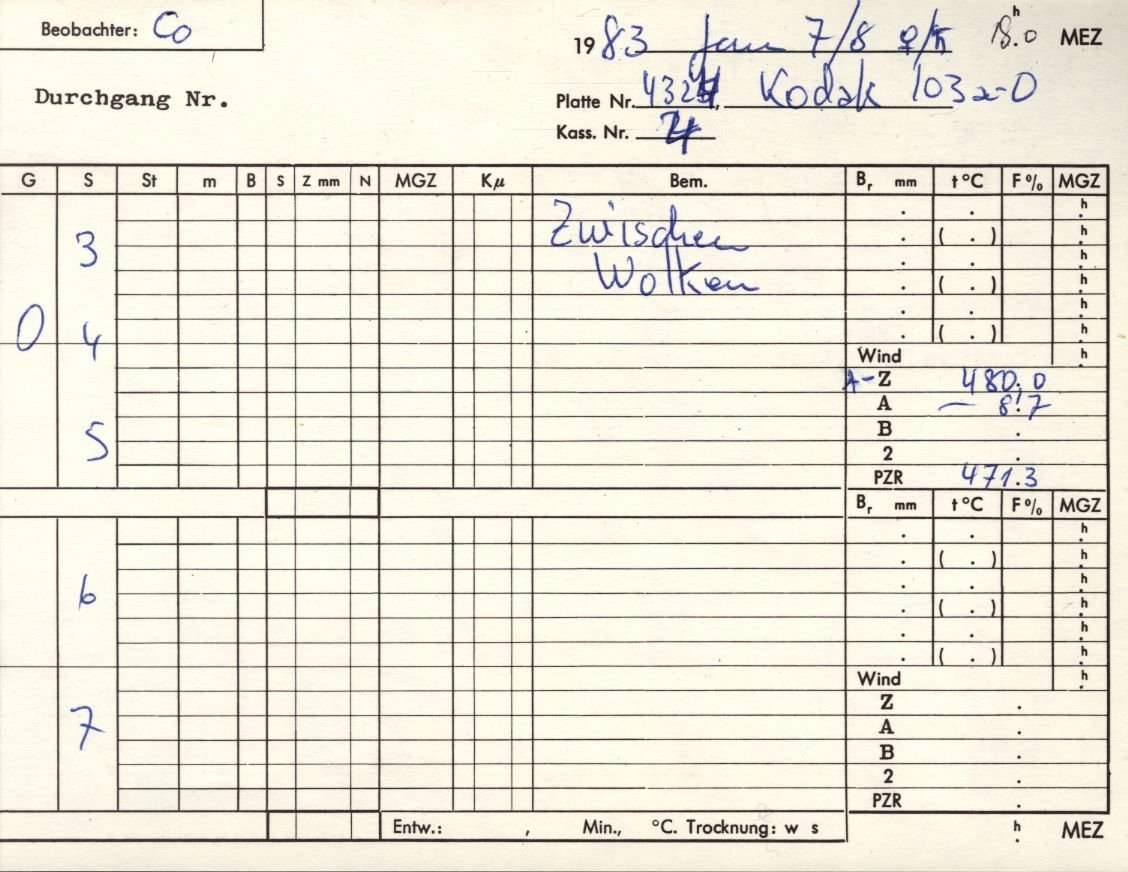 Beobachter: Co
1983 Jan 7/8 ♀/♄ 18.ʰ0 MEZ
Durchgang Nr.
Platte Nr. 4324, Kodak 103a-O
Kass. Nr. 4
G S St m B S Z mm N MGZ Kμ Bem. Bᵣ mm t°C F% MGZ
. . h.
Zwischen
3 . ( . ) h.
. . h.
Wolken . ( . ) h.
. . h.
0 4 . ( . ) h.
Wind h.
A-Z 480.0
A — 8.7
B .
5
2 .
PZR 471.3
Bᵣ mm t°C F% MGZ
. . h.
. ( . ) h.
. . h.
6 . ( . ) h.
. . h.
. ( . ) h.
Wind h.
Z .
7 A .
B .
2 .
PZR .
Entw.: , Min., °C. Trocknung: w s h. MEZ